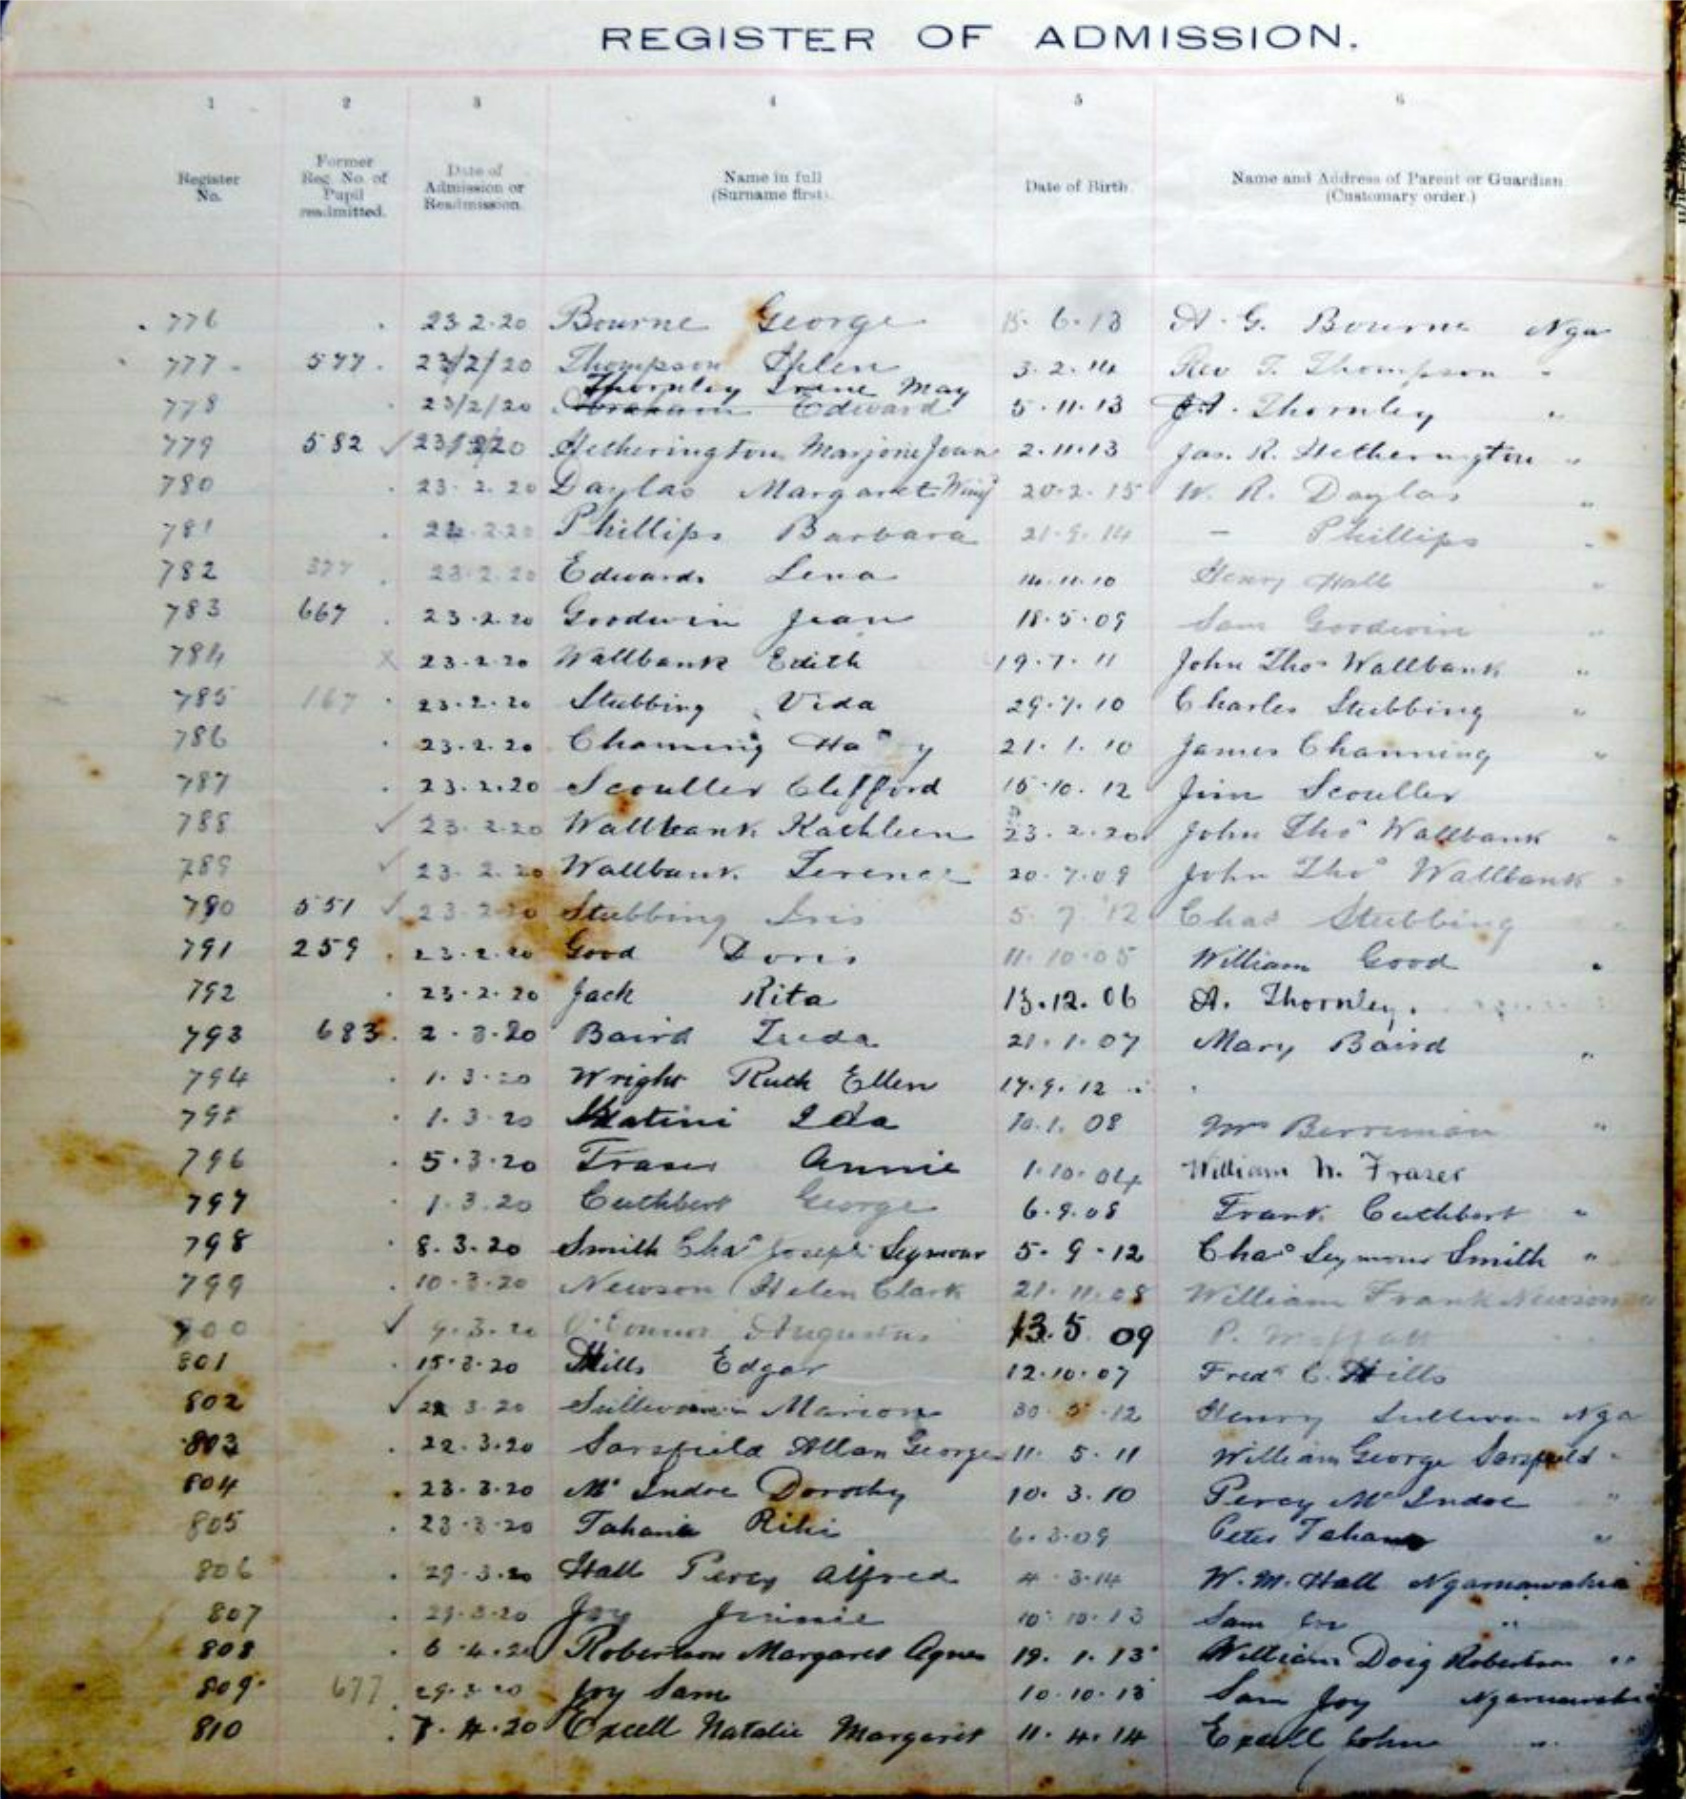 REGISTER OF ADMISSION.
1 2 3 4 5 6
Register No. Former Reg. No. of Pupil readmitted. Date of Admission or Readmission. Name in full (Surname first). Date of Birth. Name and Address of Parent or Guardian (Customary order.)
776 23.2.20 Bourne George 15.6.13 A.G. Bourne Nga
777 577 23/2/20 Thompson Helen 3.2.14 Rev T. Thompson "
Thornley Irene May
778 23/2/20 Abraham Edward 5.11.13 A. Thornley "
779 582 ✓ 23/2/20 Hetherington Marjorie Joan 2.11.13 Jas. R. Hetherington "
780 23.2.20 Daylas Margaret Winif 20.2.15 W. R. Daylas "
781 2.20 Phillips Barbara 21.9.14 – Phillips "
782 377 23.2.20 Edwards Lena 14.11.10 Henry Hall "
783 667 23.2.20 Goodwin Jean 18.5.09 Sam Goodwin "
784 x 23.2.20 Wallbank Edith 19.7.11 John Thos Wallbank "
785 167 23.2.20 Stubbing Vida 29.7.10 Charles Stubbing "
786 23.2.20 Channing 21.1.10 James Channing "
787 23.2.20 Scouller Clifford 15.10.12 Jim Scouller
788 ✓ 23.2.20 Wallbank Kathleen 23.2.20 John Thos Wallbank "
789 ✓ 23.2.20 Wallbank Terence 20.7.09 John Thos Wallbank "
790 551 ✓ 23.2.20 Stubbing Iris 5 7 12 Chas Stubbing
791 259 23.2.20 Good Doris 11.10.05 William Good "
792 23.2.20 Jack Rita 13.12.06 A. Thornley.
793 683 2.3.20 Baird Freda 21.1.07 Mary Baird "
794 1.3.20 Wright Ruth Ellen 17.9.12
795 1.3.20 Matini Ida 10.1.08 Mrs Berriman "
796 5.3.20 Fraser Annie 1.10.04 William W. Fraser
797 1.3.20 Cuthbert George 6.9.08 Frank Cuthbert "
798 8.3.20 Smith Chas Joseph Seymour 5.9.12 Chas Seymour Smith "
799 10.3.20 Newson Helen Clark 21.11.08 William Frank Newson
800 ✓ 9.3.20 O'Connor Augustus 13.5 09 P. Moffatt
801 15.3.20 Hills Edgar 12.10.07 Fredk C. Hills
802 ✓ 22 3.20 Sullivan Marion 30.5.12 Henry Sullivan Nga
803 22.3.20 Sarsfield Allan George 11.5.11 William George Sarsfield "
804 23.3.20 Mc Indoe Dorothy 10.3.10 Percy Mc Indoe "
805 23.3.20 Tahana Riki 6.3.09 Peter Tahana "
806 29.3.20 Hall Percy Alfred 4 3.14 W. M. Hall Ngaruawahia
807 29.3.20 Joy Jennie 10.10.13 Sam "
808 6.4.20 Robertson Margaret Agnes 19.1.13 William Doig Robertson "
809 677 29.3.20 Joy Sam 10.10.13 Sam Joy Ngaruawahia
810 7.4.20 Excell Natalie Margaret 11.4.14 Excell John "